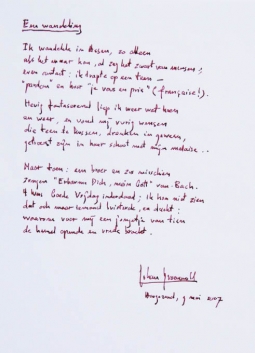 Een wandeling
Ik wandelde in Assen, zo alleen
als het maar kan, al zag het zwart van mensen;
even contact: ik trapte op een teen —
"pardon" en hoor "je vous en prie" (française!).
Hevig fantaserend liep ik weer wat heen
en weer, en vond mij vurig wensen
die teen te kussen, dronken in geween,
getroost zijn in haar schoot met mijn malaise...
Maar toen: een broer en zus misschien
zongen "Erbarme Dich, mein Gott" van Bach.
't Was Goede Vrijdag inderdaad; ik kon niet zien
dat ook maar iemand luisterde, en dacht:
waarom voor mij een jongetje van tien
de hemel opende en vrede bracht.
mei 2007